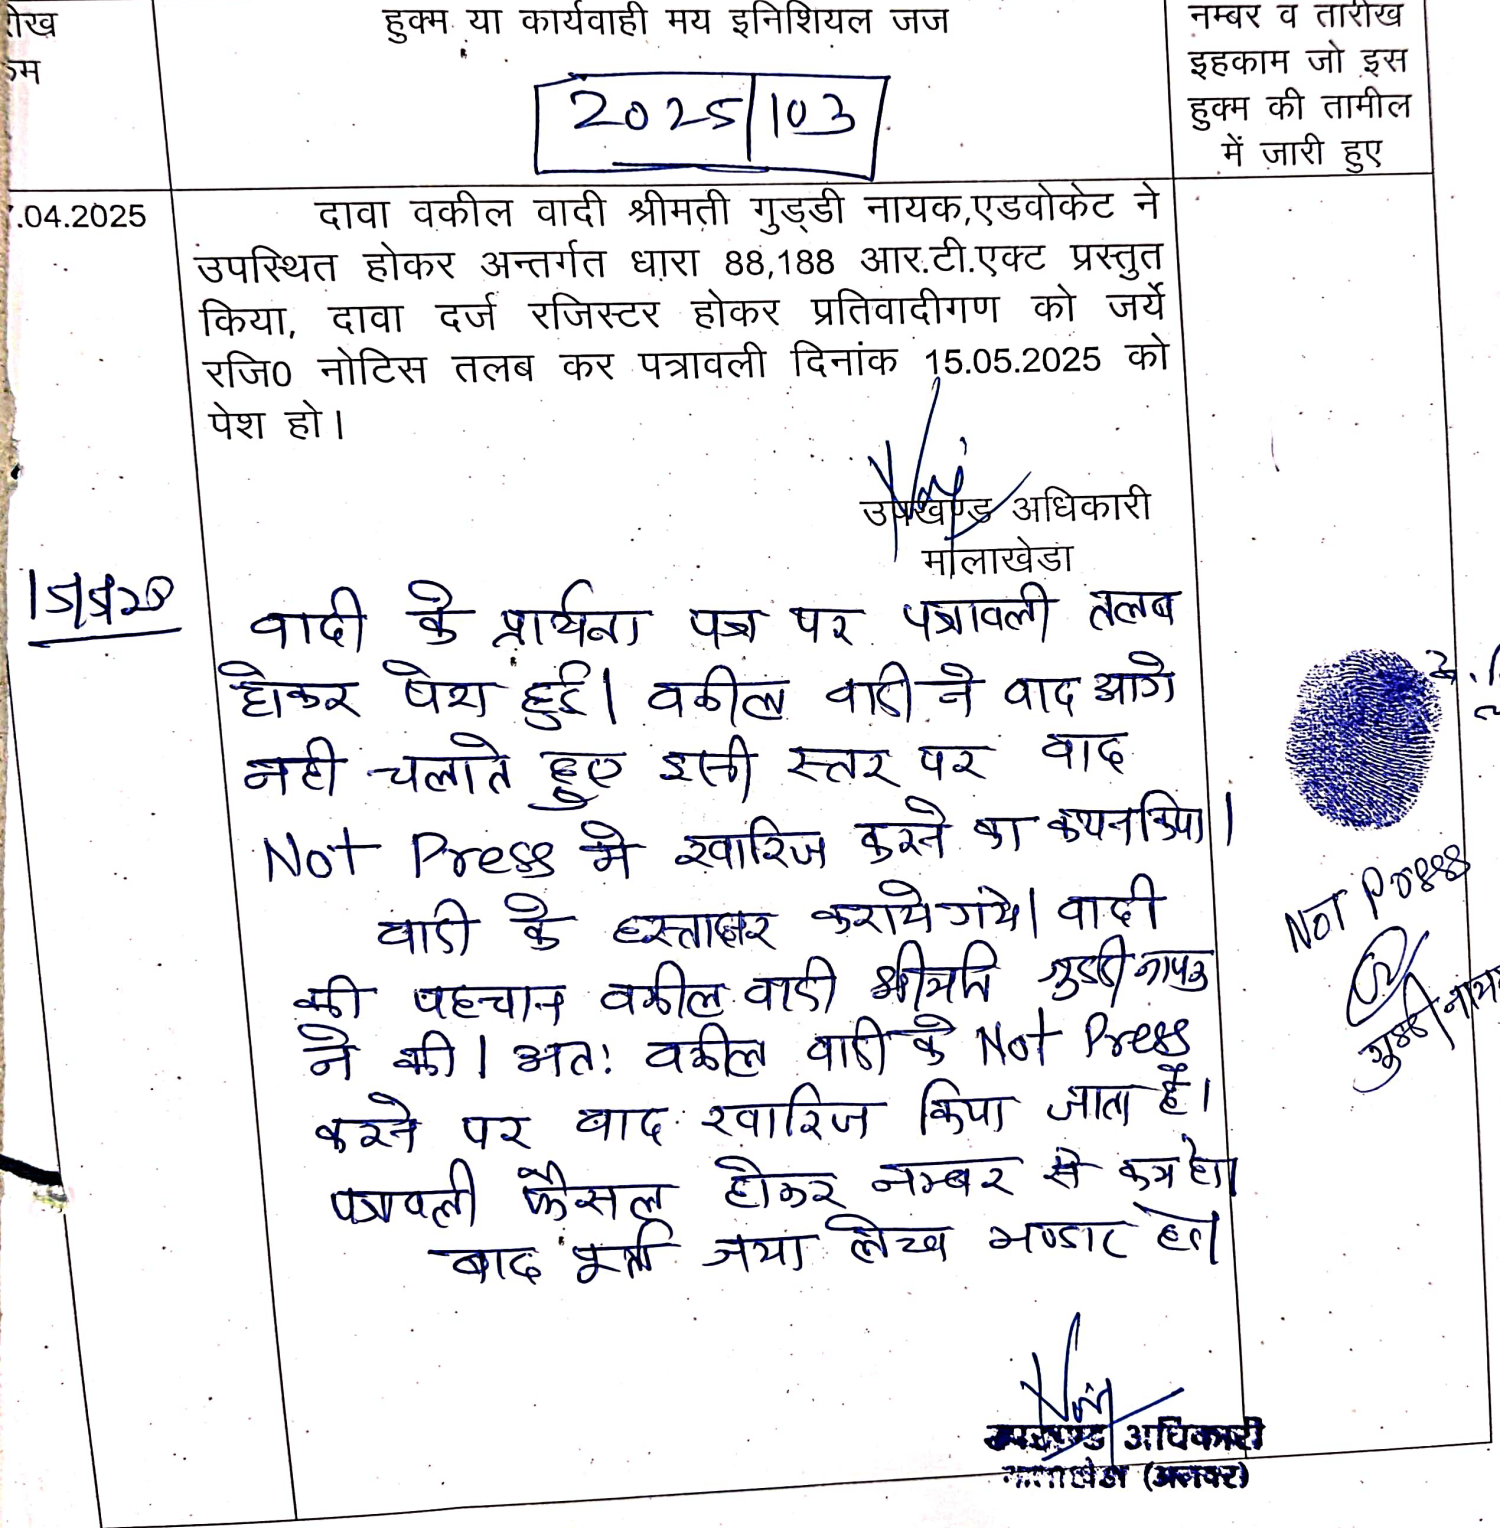 हुक्म या कार्यवाही मय इनिशियल जज
नम्बर व तारीख
इहकाम जो इस
हुक्म की तामील
में जारी हुए
2025/103
.04.2025
दावा वकील वादी श्रीमती गुड्डी नायक,एडवोकेट ने
उपस्थित होकर अन्तर्गत धारा 88,188 आर.टी.एक्ट प्रस्तुत
किया, दावा दर्ज रजिस्टर होकर प्रतिवादीगण को जर्ये
रजि0 नोटिस तलब कर पत्रावली दिनांक 15.05.2025 को
पेश हो।
उपखण्ड अधिकारी
मालाखेडा
वादी के प्रार्थना पत्र पर पत्रावली तलब
होकर पेश हुई। वकील वादी ने वाद आगे
नही चलाते हुए इसी स्तर पर वाद
Not Press मे खारिज करने का कथन किया।
वादी के हस्ताक्षर कराये गये। वादी
की पहचान वकील वादी श्रीमति गुड्डी नायक
ने की। अतः वकील वादी के Not Press
करने पर वाद खारिज किया जाता है।
पत्रावली फैसल होकर नम्बर से कम हो।
बाद पूर्ति जमा लेख भण्डार हो।
Not Press
गुड्डी नायक
उपखण्ड अधिकारी
मालाखेडा (अलवर)